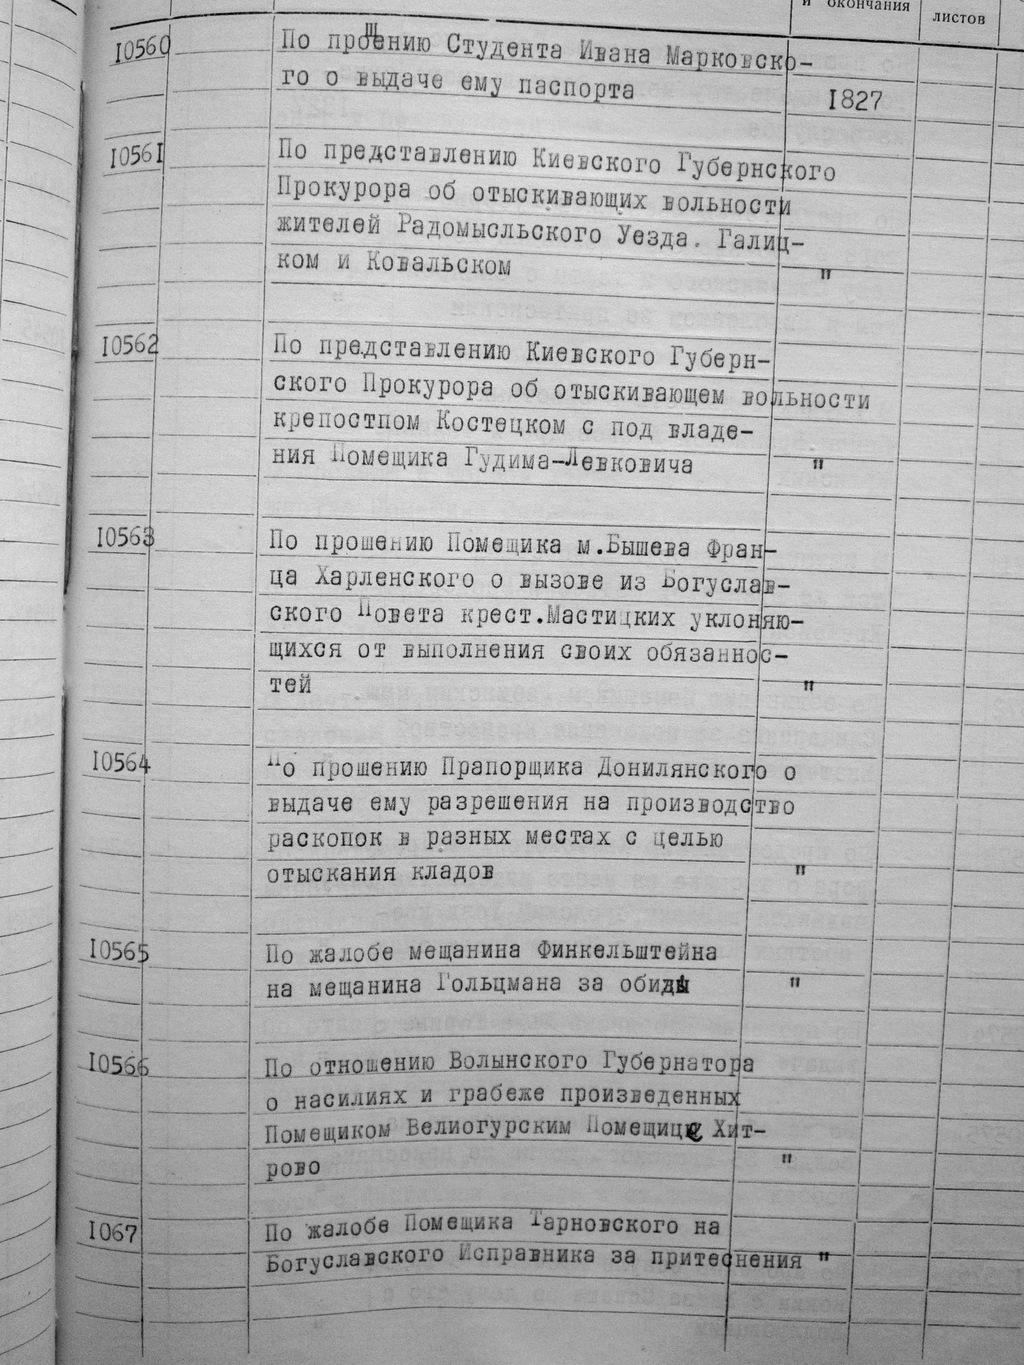 и окончания
листов
I0560
По прошению Студента Ивана Марковско-
го о выдаче ему паспорта
I827
I056I
По представлению Киевского Губернского
Прокурора об отыскивающих вольности
жителей Радомысльского Уезда. Галиц-
ком и Ковальском "
I0562
По представлению Киевского Губерн-
ского Прокурора об отыскивающем вольности
крепостпом Костецком с под владе-
ния Помещика Гудима-Левковича "
I0563
По прошению Помещика м.Бышева Фран-
ца Харленского о вызове из Богуслав-
ского Повета крест.Мастицких уклоняю-
щихся от выполнения своих обязаннос-
тей "
I0564
По прошению Прапорщика Донилянского о
выдаче ему разрешения на производство
раскопок в разных местах с целью
отыскания кладов "
I0565
По жалобе мещанина Финкельштейна
на мещанина Гольцмана за обиды "
I0566
По отношению Волынского Губернатора
о насилиях и грабеже произведенных
Помещиком Велиогурским Помещице Хит-
рово "
I067
По жалобе Помещика Тарновского на
Богуславского Исправника за притеснения "